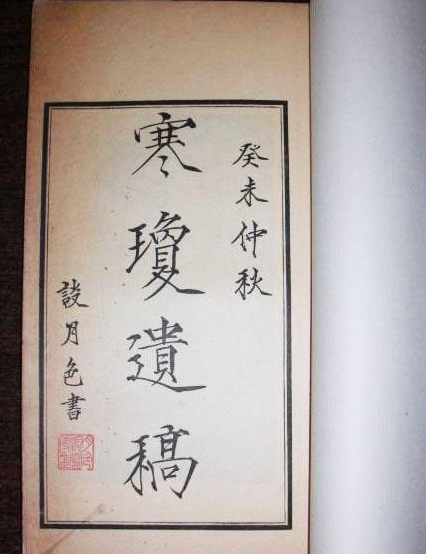 癸未仲秋
寒瓊遺稿
談月色書